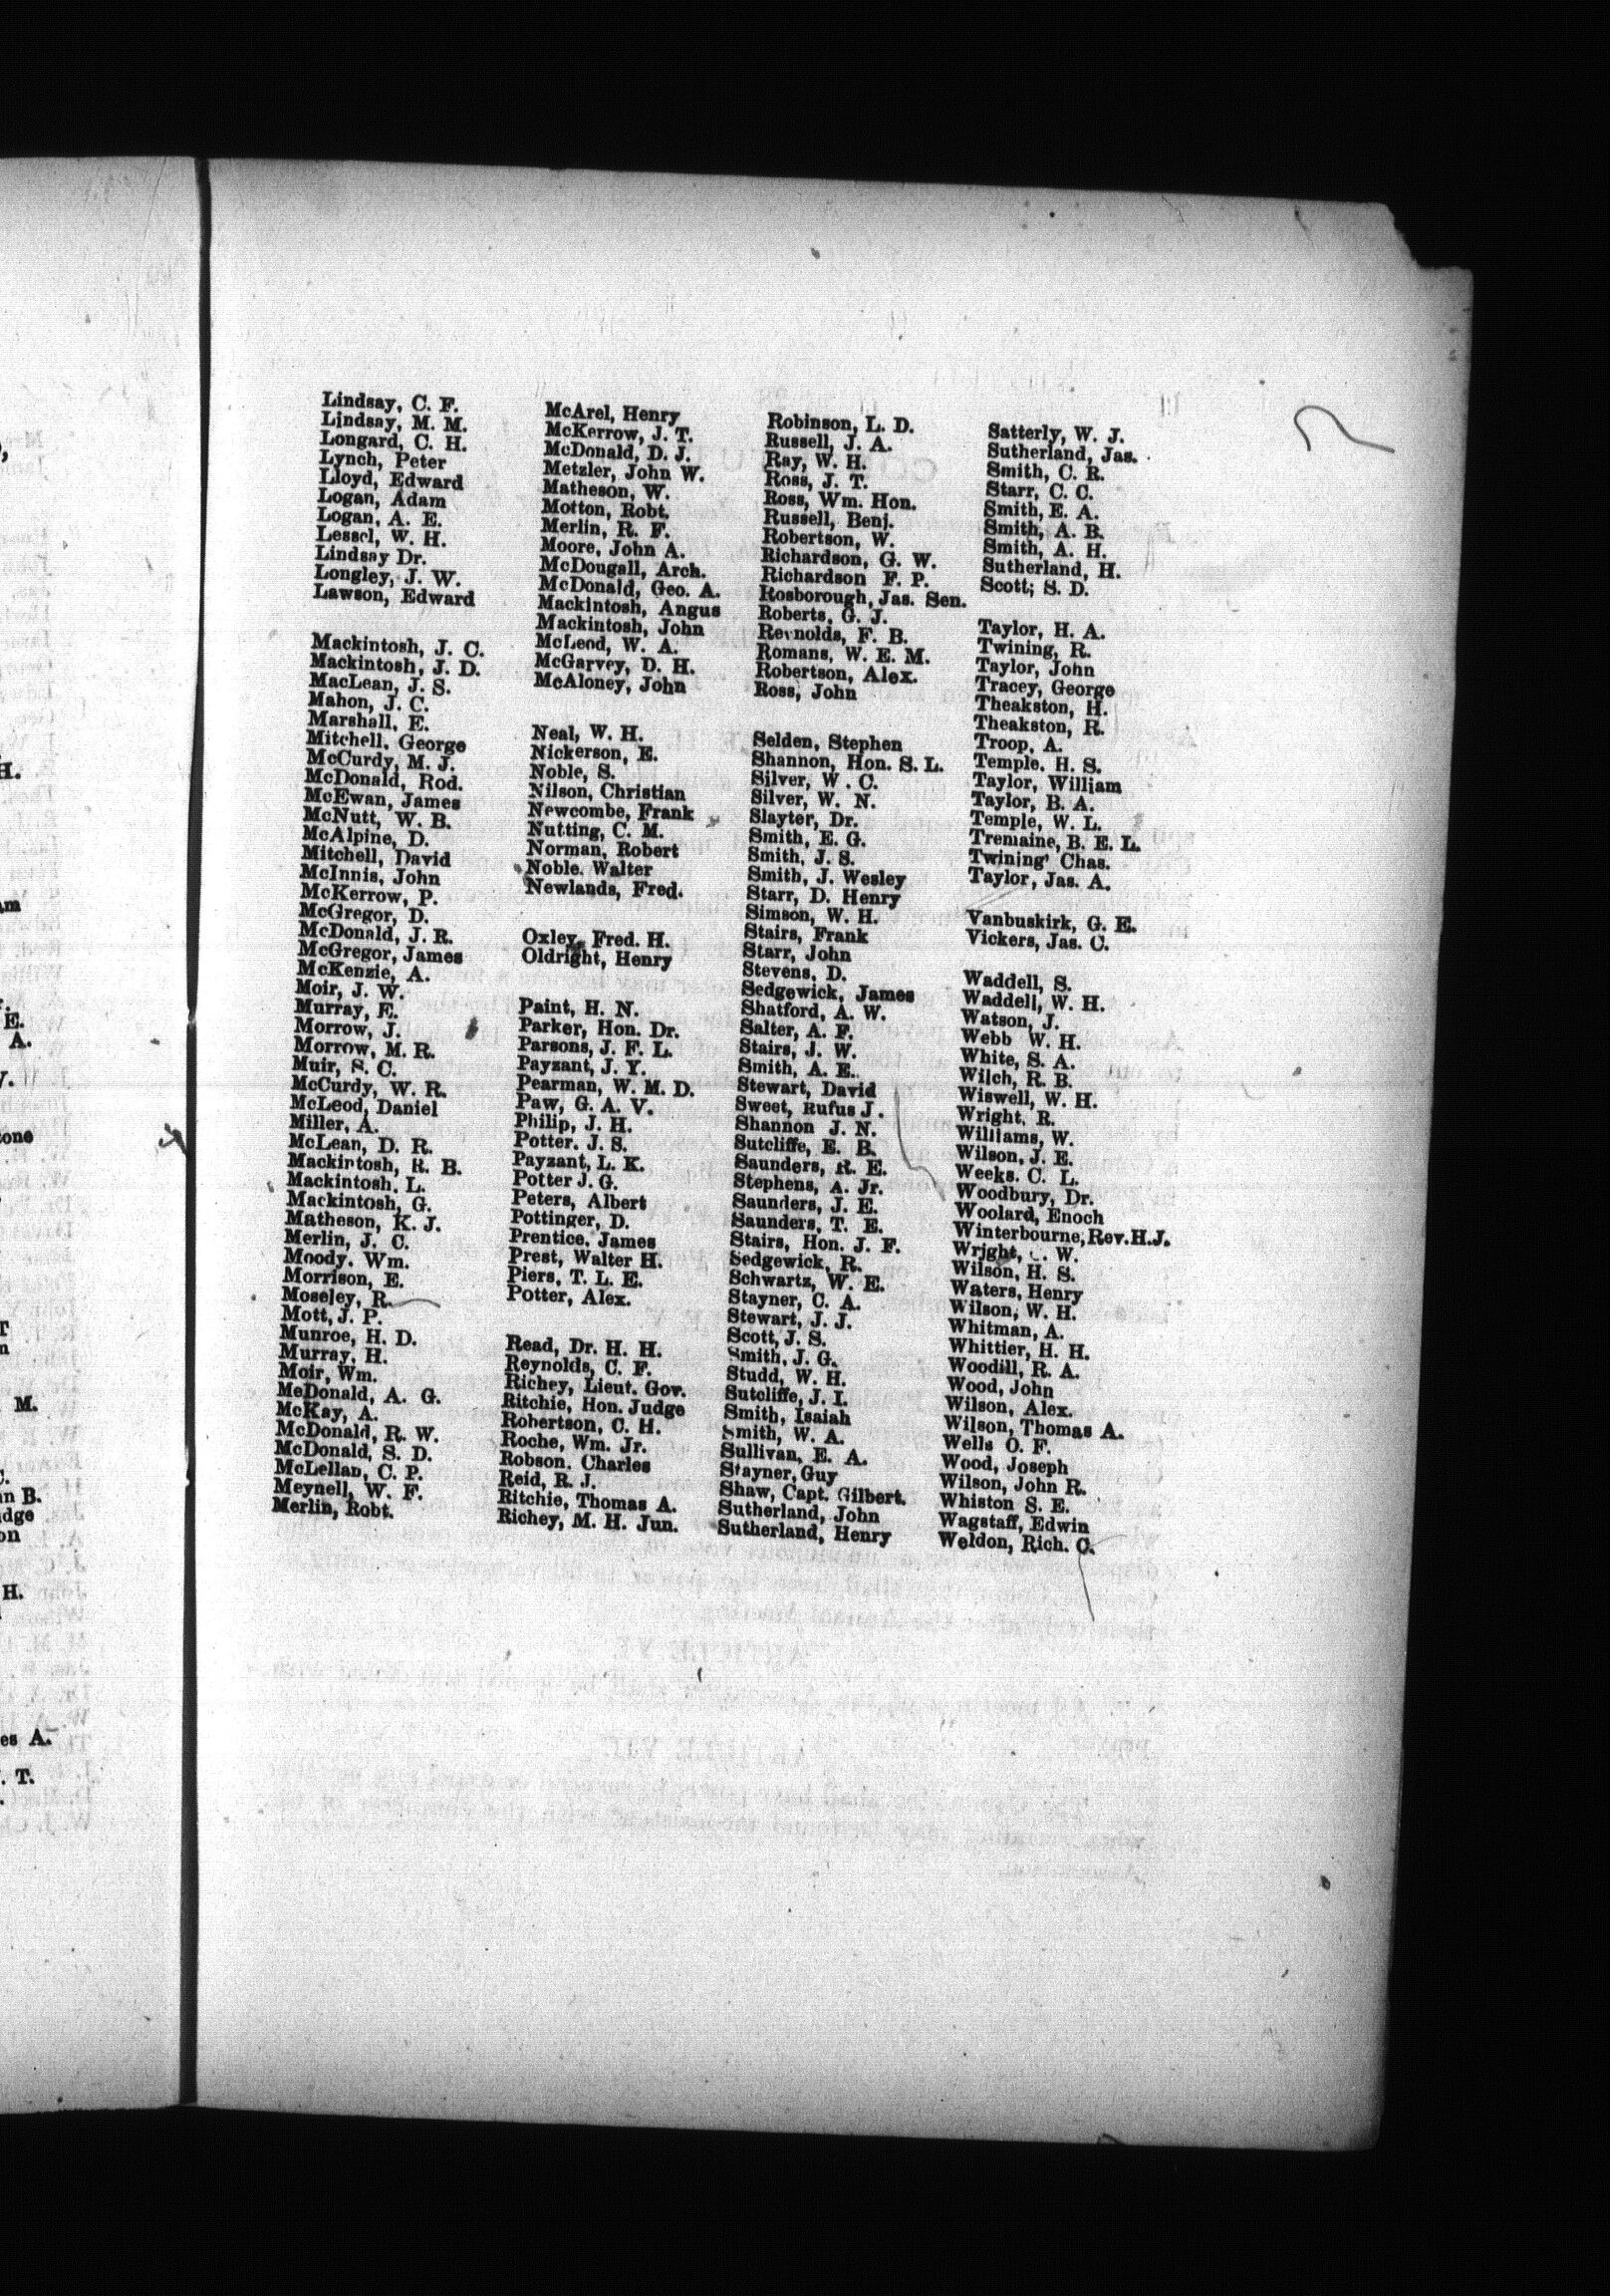 Lindsay, C. F.
Lindsay, M. M.
Longard, C. H.
Lynch, Peter
Lloyd, Edward
Logan, Adam
Logan, A. E.
Lessel, W. H.
Lindsay Dr.
Longley, J. W.
Lawson, Edward
Mackintosh, J. C.
Mackintosh, J. D.
MacLean, J. S.
Mahon, J. C.
Marshall, E.
Mitchell, George
McCurdy, M. J.
McDonald, Rod.
McEwan, James
McNutt, W. B.
McAlpine, D.
Mitchell, David
McInnis, John
McKerrow, P.
McGregor, D.
McDonald, J. R.
McGregor, James
McKenzie, A.
Moir, J. W.
Murray, E.
Morrow, J.
Morrow, M. R.
Muir, S. C.
McCurdy, W. R.
McLeod, Daniel
Miller, A.
McLean, D. R.
Mackintosh, R. B.
Mackintosh, L.
Mackintosh, G.
Matheson, K. J.
Merlin, J. C.
Moody. Wm.
Morrison, E.
Moseley, R.
Mott, J. P.
Munroe, H. D.
Murray, H.
Moir, Wm.
McDonald, A. G.
McKay, A.
McDonald, R. W.
McDonald, S. D.
McLellan, C. P.
Meynell, W. F.
Merlin, Robt.
McArel, Henry
McKerrow, J. T.
McDonald, D. J.
Metzler, John W.
Matheson, W.
Motton, Robt.
Merlin, R. F.
Moore, John A.
McDougall, Arch.
McDonald, Geo. A.
Mackintosh, Angus
Mackintosh, John
McLeod, W. A.
McGarvey, D. H.
McAloney, John
Neal, W. H.
Nickerson, E.
Noble, S.
Nilson, Christian
Newcombe, Frank
Nutting, C. M.
Norman, Robert
Noble. Walter
Newlands, Fred.
Oxley, Fred. H.
Oldright, Henry
Paint, H. N.
Parker, Hon. Dr.
Parsons, J. F. L.
Payzant, J. Y.
Pearman, W. M. D.
Paw, G. A. V.
Philip, J. H.
Potter. J. S.
Payzant, L. K.
Potter J. G.
Peters, Albert
Pottinger, D.
Prentice. James
Prest, Walter H.
Piers, T. L. E.
Potter, Alex.
Read, Dr. H. H.
Reynolds, C. F.
Richey, Lieut. Gov.
Ritchie, Hon. Judge
Robertson, C. H.
Roche, Wm. Jr.
Robson. Charles
Reid, R. J.
Ritchie, Thomas A.
Richey, M. H. Jun.
Robinson, L. D.
Russell, J. A.
Ray, W. H.
Ross, J. T.
Ross, Wm. Hon.
Russell, Benj.
Robertson, W.
Richardson, G. W.
Richardson F. P.
Rosborough, Jas. Sen.
Roberts, G. J.
Reynolds, F. B.
Romans, W. E. M.
Robertson, Alex.
Ross, John
Selden, Stephen
Shannon, Hon. S. L.
Silver, W . C.
Silver, W. N.
Slayter, Dr.
Smith, E. G.
Smith, J. S.
Smith, J. Wesley
Starr, D. Henry
Simson, W. H.
Stairs, Frank
Starr, John
Stevens. D.
Sedgewick, James
Shatford, A. W.
Salter, A. F.
Stairs, J. W.
Smith, A. E.
Stewart, David
Sweet, Rufus J.
Shannon J. N.
Sutcliffe, E. B.
Saunders, R. E.
Stephens, A. Jr.
Saunders, J. E.
Saunders, T. E.
Stairs, Hon. J. F.
Sedgewick, R.
Schwartz, W. E.
Stayner, C. A.
Stewart, J. J.
Scott, J. S.
Smith, J. G.
Studd, W. H.
Sutcliffe, J. I.
Smith, Isaiah
Smith, W. A.
Sullivan, E. A.
Stayner, Guy
Shaw, Capt. Gilbert.
Sutherland, John
Sutherland, Henry
Satterly, W. J.
Sutherland, Jas.
Smith, C. R.
Starr, C. C.
Smith, E. A.
Smith, A. B.
Smith, A. H.
Sutherland, H.
Scott; S. D.
Taylor, H. A.
Twining, R.
Taylor, John
Tracey, George
Theakston, H.
Theakston, R.
Troop, A.
Temple. H. S.
Taylor, William
Taylor, B. A.
Temple, W. L.
Tremaine, B. E. L.
Twining' Chas.
Taylor, Jas. A.
Vanbuskirk, G. E.
Vickers, Jas. C.
Waddell, S.
Waddell, W. H.
Watson, J.
Webb W. H.
White, S. A.
Wilch, R. B.
Wiswell, W. H.
Wright, R.
Williams, W.
Wilson, J. E.
Weeks. C. L.
Woodbury, Dr.
Woolard, Enoch
Winterbourne, Rev. H.J.
Wright, W.
Wilson, H. S.
Waters, Henry
Wilson, W. H.
Whitman, A.
Whittier, H. H.
Woodill, R. A.
Wood, John
Wilson, Alex.
Wilson, Thomas A.
Wells O. F.
Wood, Joseph
Wilson, John R.
Whiston S. E.
Wagstaff, Edwin
Weldon, Rich. C.